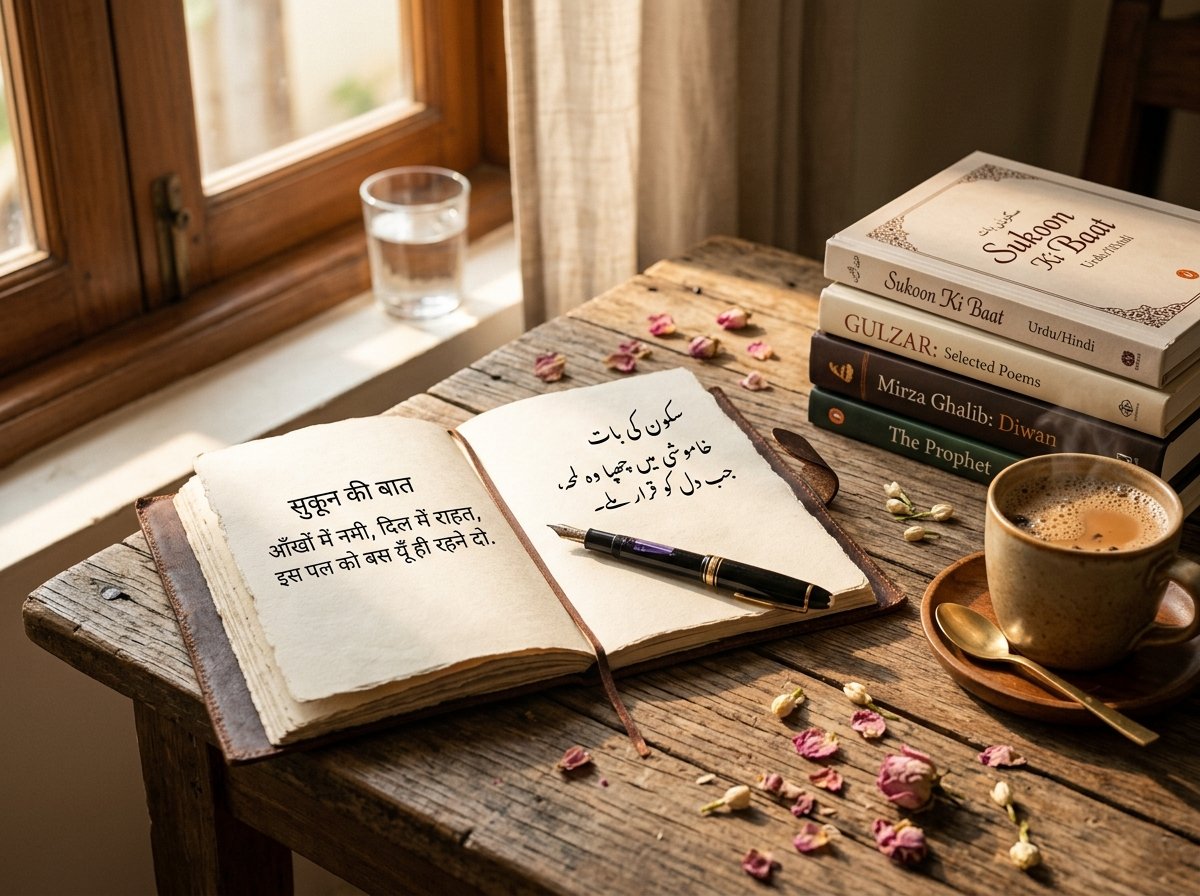 सुकून की बात
आँखों में नमी, दिल में राहत,
इस पल को बस यूँ ही रहने दो.
سکون کی بات
خاموشی میں چھپا وہ لمحہ،
جب دل کو قرار ملے۔
Sukoon
Ki Baat
Urdu/Hindi
Sukoon Ki Baat
Urdu/Hindi
GULZAR: Selected Poems
Mirza Ghalib: Diwan
The Prophet